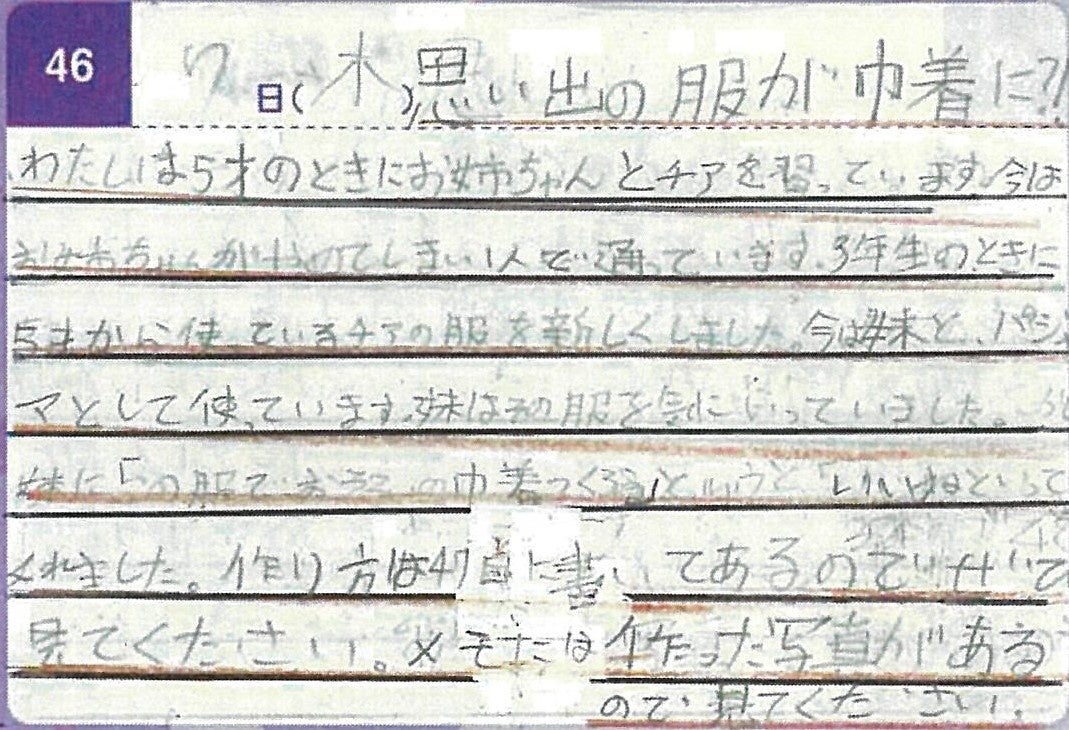 46 7日(木)思い出の服が巾着に?!
わたしは5才のときにお姉ちゃんとチアを習っています。今は
お姉ちゃんがやめてしまい1人で通っています。3年生のときに
使っているチアの服を新しくしました。今は妹と、パジ
マとして使っています。妹はその服を気にいっていました。
妹に「の服でおそろいの巾着つくる」というと「いいねといって
くれました。作り方は47頁に書いてあるのでぜいて
見てください。メモだは作った写真がある
ので見てください。